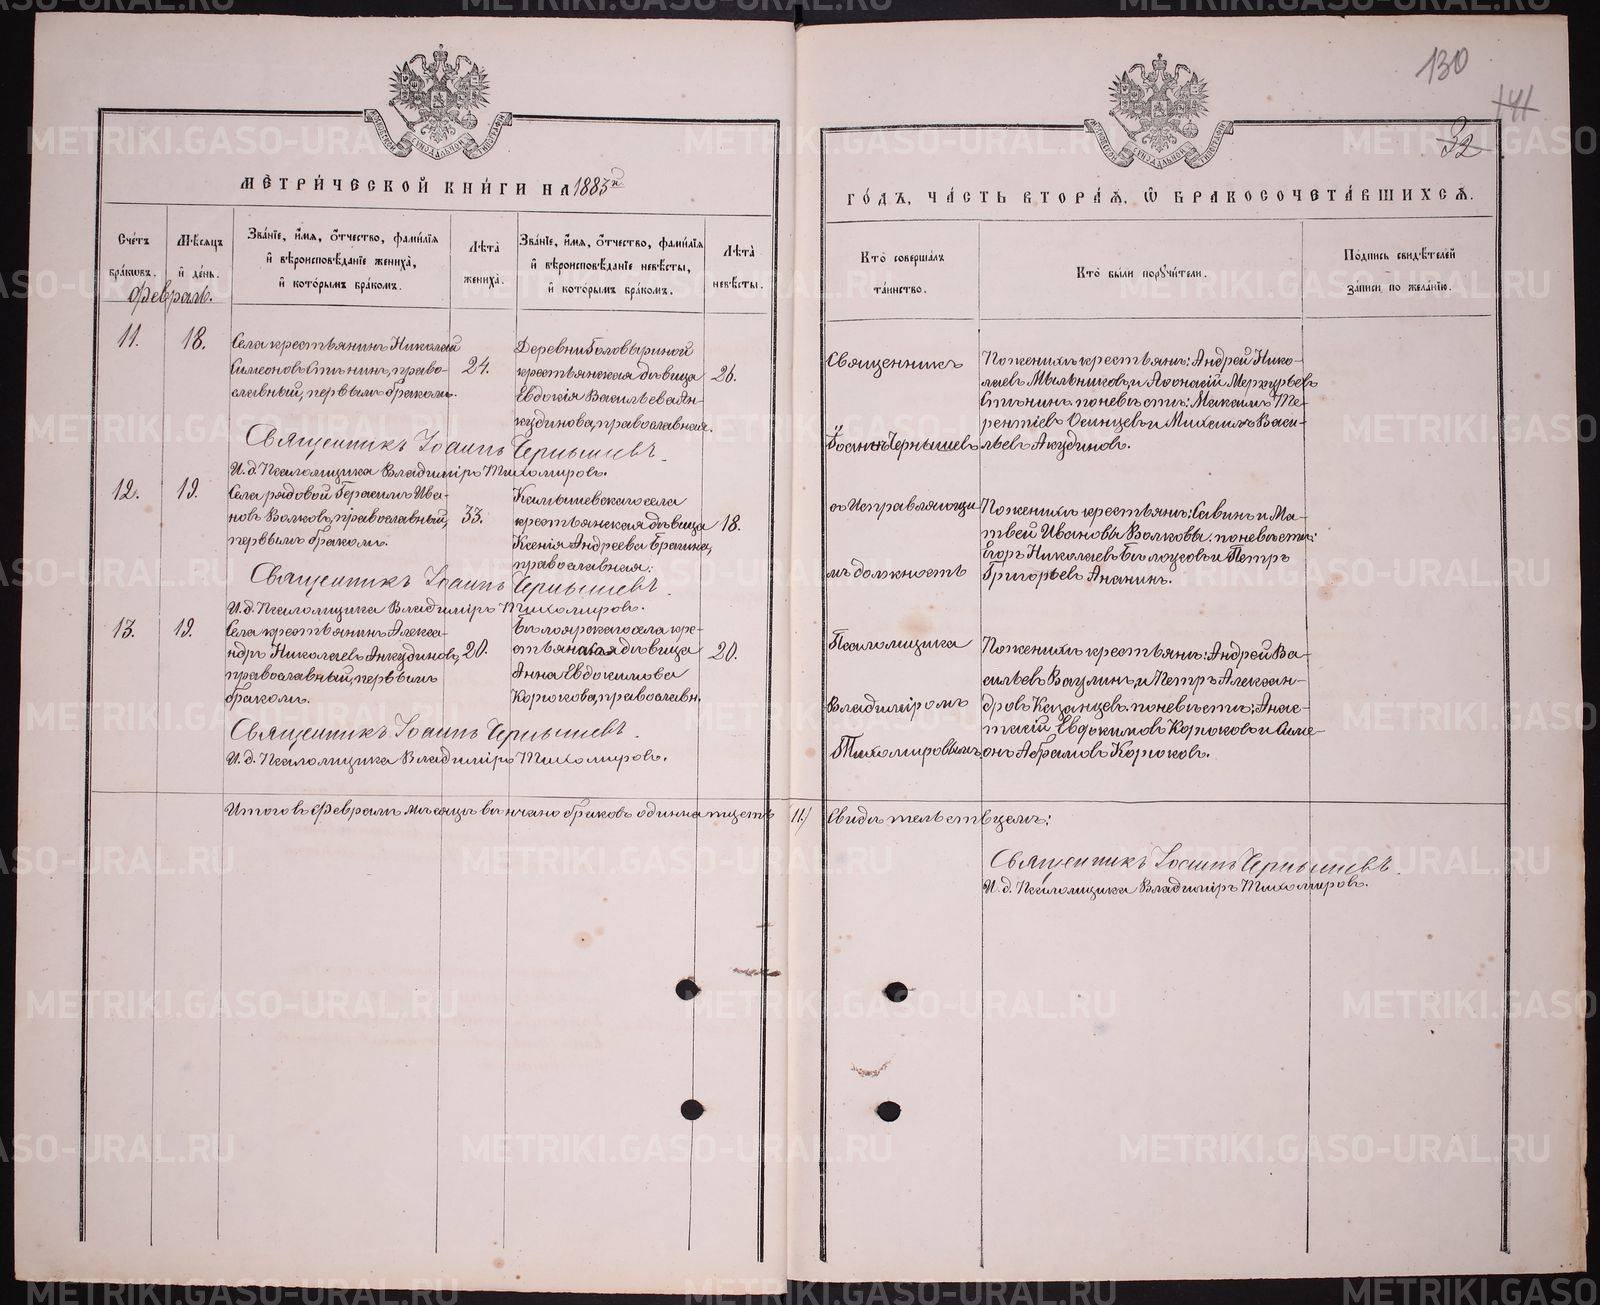 130
141
32
МОСКОВСКОЙ СѴНОДАЛЬНОЙ ТИПОГРАФІИ
МОСКОВСКОЙ СѴНОДАЛЬНОЙ ТИПОГРАФІИ
МЕТРИ́ЧЕСКОЙ КНИ́ГИ НА 1883й
ГО́ДЪ, ЧА́СТЬ ВТОРА́Ѧ, Ѽ БРАКОСОЧЕТА́ВШИХСѦ.
Сче́тъ
бра́кѡвъ.
Мѣ́сѧцъ
и҆ де́нь.
Зва́нїе, и҆́мѧ, ѻ҆́тчество, фами́лїѧ
и҆ вѣроисповѣ́данїе жениха̀,
и҆ кото́рымъ бра́комъ.
Лѣ́та
жениха̀.
Зва́нїе, и҆́мѧ, ѻ҆́тчество, фами́лїѧ
и҆ вѣроисповѣ́данїе невѣ́сты,
и҆ кото́рымъ бра́комъ.
Лѣ́та
невѣ́сты.
Кто̀ соверша́лъ
та́инство.
Кто̀ бы́ли порꙋчи́тели.
По́дпись свидѣ́телей
за́писи по жела́нїю.
Февраль.
11.
18.
Села крестьянинъ Николай
Симеоновъ Стънинъ, право-
славный, первымъ бракомъ.
24.
Деревни Головыриной
крестьянская дѣвица
Евдокія Васильева Ан-
кудинова, православная.
26.
Священникъ
Іоаннъ Чернышевъ
По женихѣ крестьяне: Андрей Нико-
лаевъ Мыльниковъ и Аѳонасій Меркурьевъ
Стънинъ. по невѣстѣ: Максимъ Те-
рентіевъ Осинцевъ и Михаилъ Васи-
льевъ Акудиновъ.
Священникъ Іоаннъ Чернышевъ.
И.д. Псаломщика Владиміръ Тихомировъ.
12.
19.
Села рядовой Герасимъ Ива-
новъ Волковъ, православный,
первымъ бракомъ.
33.
Камышевскаго села
крестьянская дѣвица
Ксенія Андреева Брагина,
православная.
18.
съ Исправляющи
мъ должность
По женихѣ крестьяне: Савинъ и Ма-
твей Ивановы Волковы. по невѣстѣ:
Егоръ Николаевъ Бѣлоусовъ и Петръ
Григорьевъ Ананинъ.
Священникъ Іоаннъ Чернышевъ.
И.д. Псаломщика Владиміръ Тихомировъ.
13.
19.
Села крестьянинъ Алекса-
ндръ Николаевъ Анкудиновъ,
православный, первымъ
бракомъ.
20.
Бѣлоярскаго села кре-
стьянская дѣвица
Анна Евдокимова
Корюкова, православн.
20.
Псаломщика
Владиміромъ
Тихомировымъ.
По женихѣ крестьяне: Андрей Ва-
сильевъ Ваулинъ, и Петръ Алексан-
дровъ Казанцевъ. по невѣстѣ: Анас-
тасій Евдокимовъ Корюковъ и Симе-
онъ Абрамовъ Корюковъ.
Священникъ Іоаннъ Чернышевъ.
И.д. Псаломщика Владиміръ Тихомировъ.
Итого въ Февралѣ мѣсяцѣ вѣнчано браковъ одиннатцеть 11)
Свидѣтельствуемъ:
Священникъ Іоаннъ Чернышевъ.
И.д. Псаломщика Владиміръ Тихомировъ.
METRIKI.GASO-URAL.RU